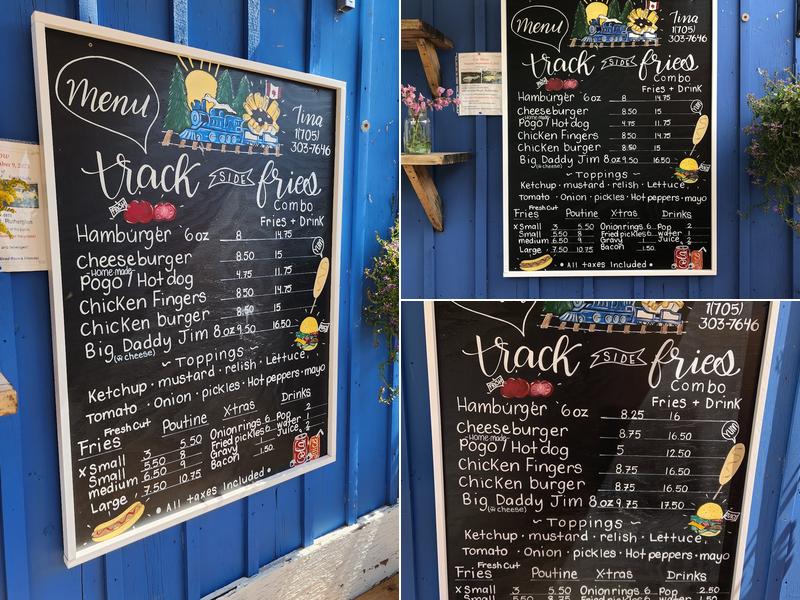 Menu
Tina
1(705)
303-7646
track SIDE fries
Combo
Fries + Drink
Hamburger 6oz 8 14.75
Cheeseburger 8.50 15
Home made
Pogo / Hotdog 4.75 11.75
Chicken Fingers 8.50 14.75
Chicken burger 8.50 14.75
Big Daddy Jim 8oz 9.50 16.50
(& cheese)
~ Toppings ~
Ketchup · mustard · relish · Lettuce
Tomato · Onion · pickles · Hot peppers · mayo
Fresh Cut
Fries Poutine X-tras Drinks
X Small 3 5.50 Onion rings 6 Pop 2
Small 5.50 8 Fried pickles 6 water 1
medium 6.50 9 Gravy 1 Juice 2
Large 7.50 10.75 Bacon 1.50
• All taxes Included •
Menu
Tina
1(705)
303-7646
track SIDE fries
Combo
Fries + Drink
Hamburger 6oz 8 14.75
Cheeseburger 8.50 15
Home made
Pogo / Hotdog 4.75 11.75
Chicken Fingers 8.50 14.75
Chicken burger 8.50 14.75
Big Daddy Jim 8oz 9.50 16.50
(& cheese)
~ Toppings ~
Ketchup · mustard · relish · Lettuce
Tomato · Onion · pickles · Hot peppers · mayo
Fresh Cut
Fries Poutine X-tras Drinks
X Small 3 5.50 Onion rings 6 Pop 2
Small 5.50 8 Fried pickles 6 water 1
medium 6.50 9 Gravy 1 Juice 2
Large 7.50 10.75 Bacon 1.50
• All taxes Included •
1(705)
303-7646
track SIDE fries
Combo
Fries + Drink
Hamburger 6oz 8.25 16
Cheeseburger 8.75 16.50
Home made
Pogo / Hotdog 5 12.50
Chicken Fingers 8.75 16.50
Chicken burger 8.75 16.50
Big Daddy Jim 8oz 9.75 17.50
(& cheese)
~ Toppings ~
Ketchup · mustard · relish · Lettuce
Tomato · Onion · pickles · Hot peppers · mayo
Fresh Cut
Fries Poutine X-tras Drinks
X Small 3 5.50 Onion rings 6 Pop 2.50